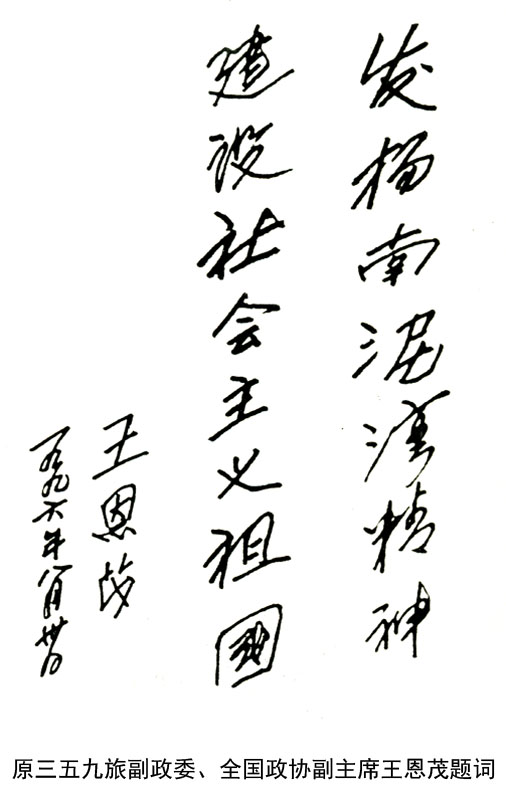 发扬南泥湾精神
建设社会主义祖國
王恩茂
一九九六年八月卅日
原三五九旅副政委、全国政协副主席王恩茂题词